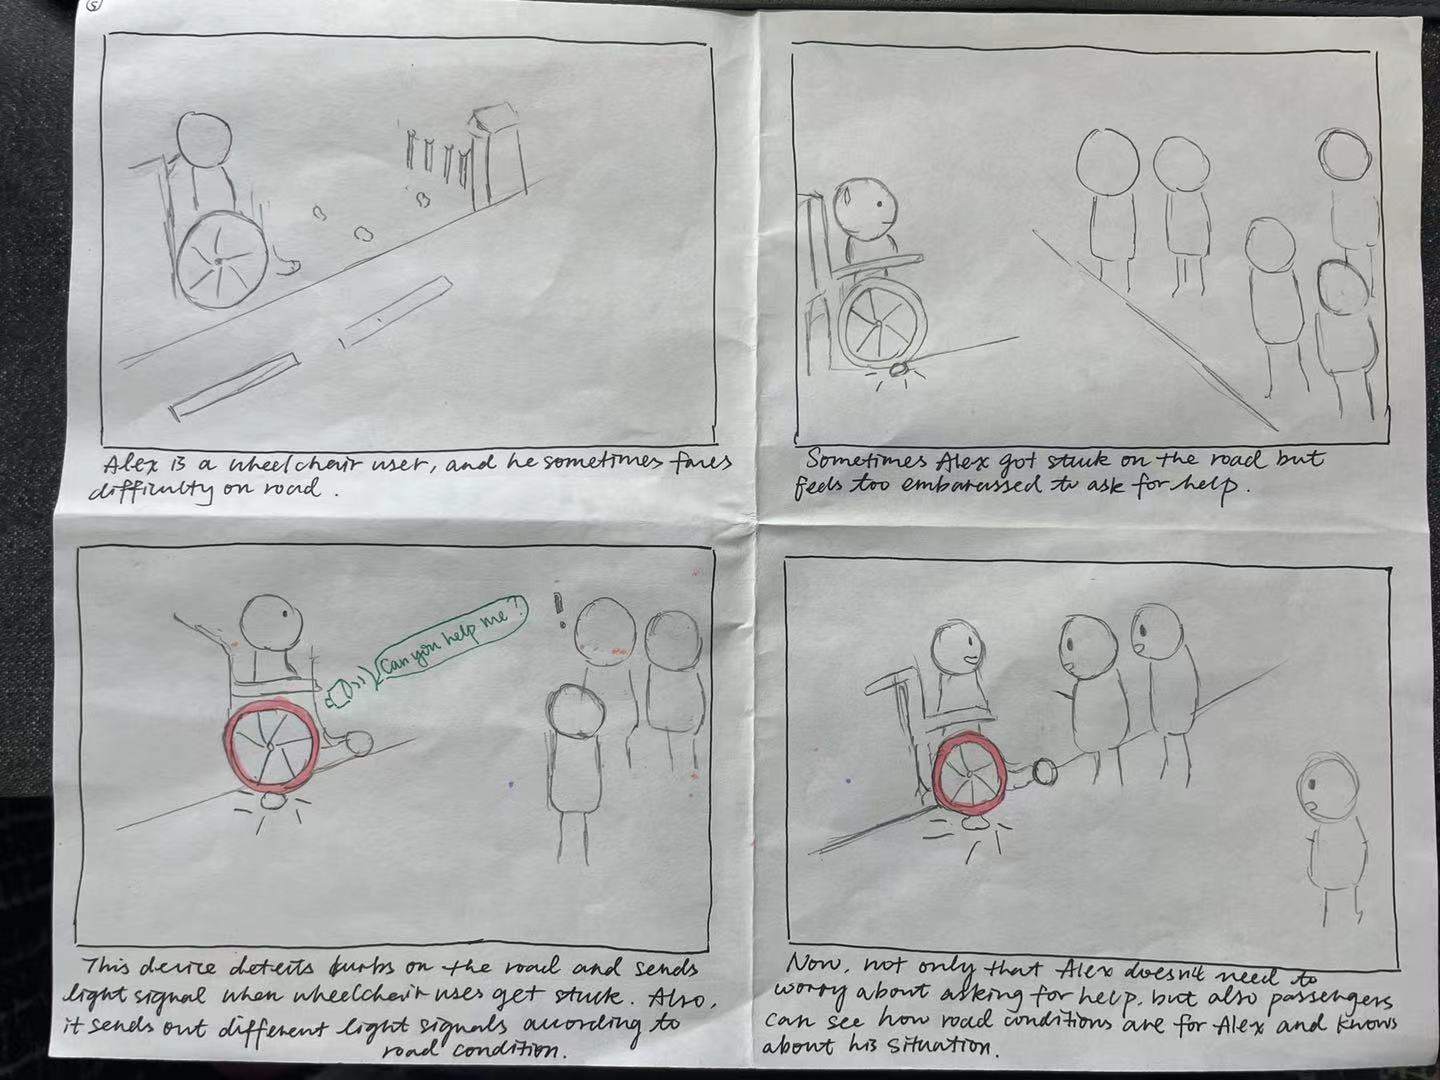 5
Alex is a wheelchair user, and he sometimes faces
difficulty on road.
Sometimes Alex got stuck on the road but
feels too embarassed to ask for help.
!
Can you help me?
This device detects burbs on the road and sends
light signal when wheelchair uses get stuck. Also,
it sends out different light signals according to
road condition.
Now, not only that Alex doesn't need to
worry about asking for help, but also passengers
can see how road conditions are for Alex and knows
about his situation.